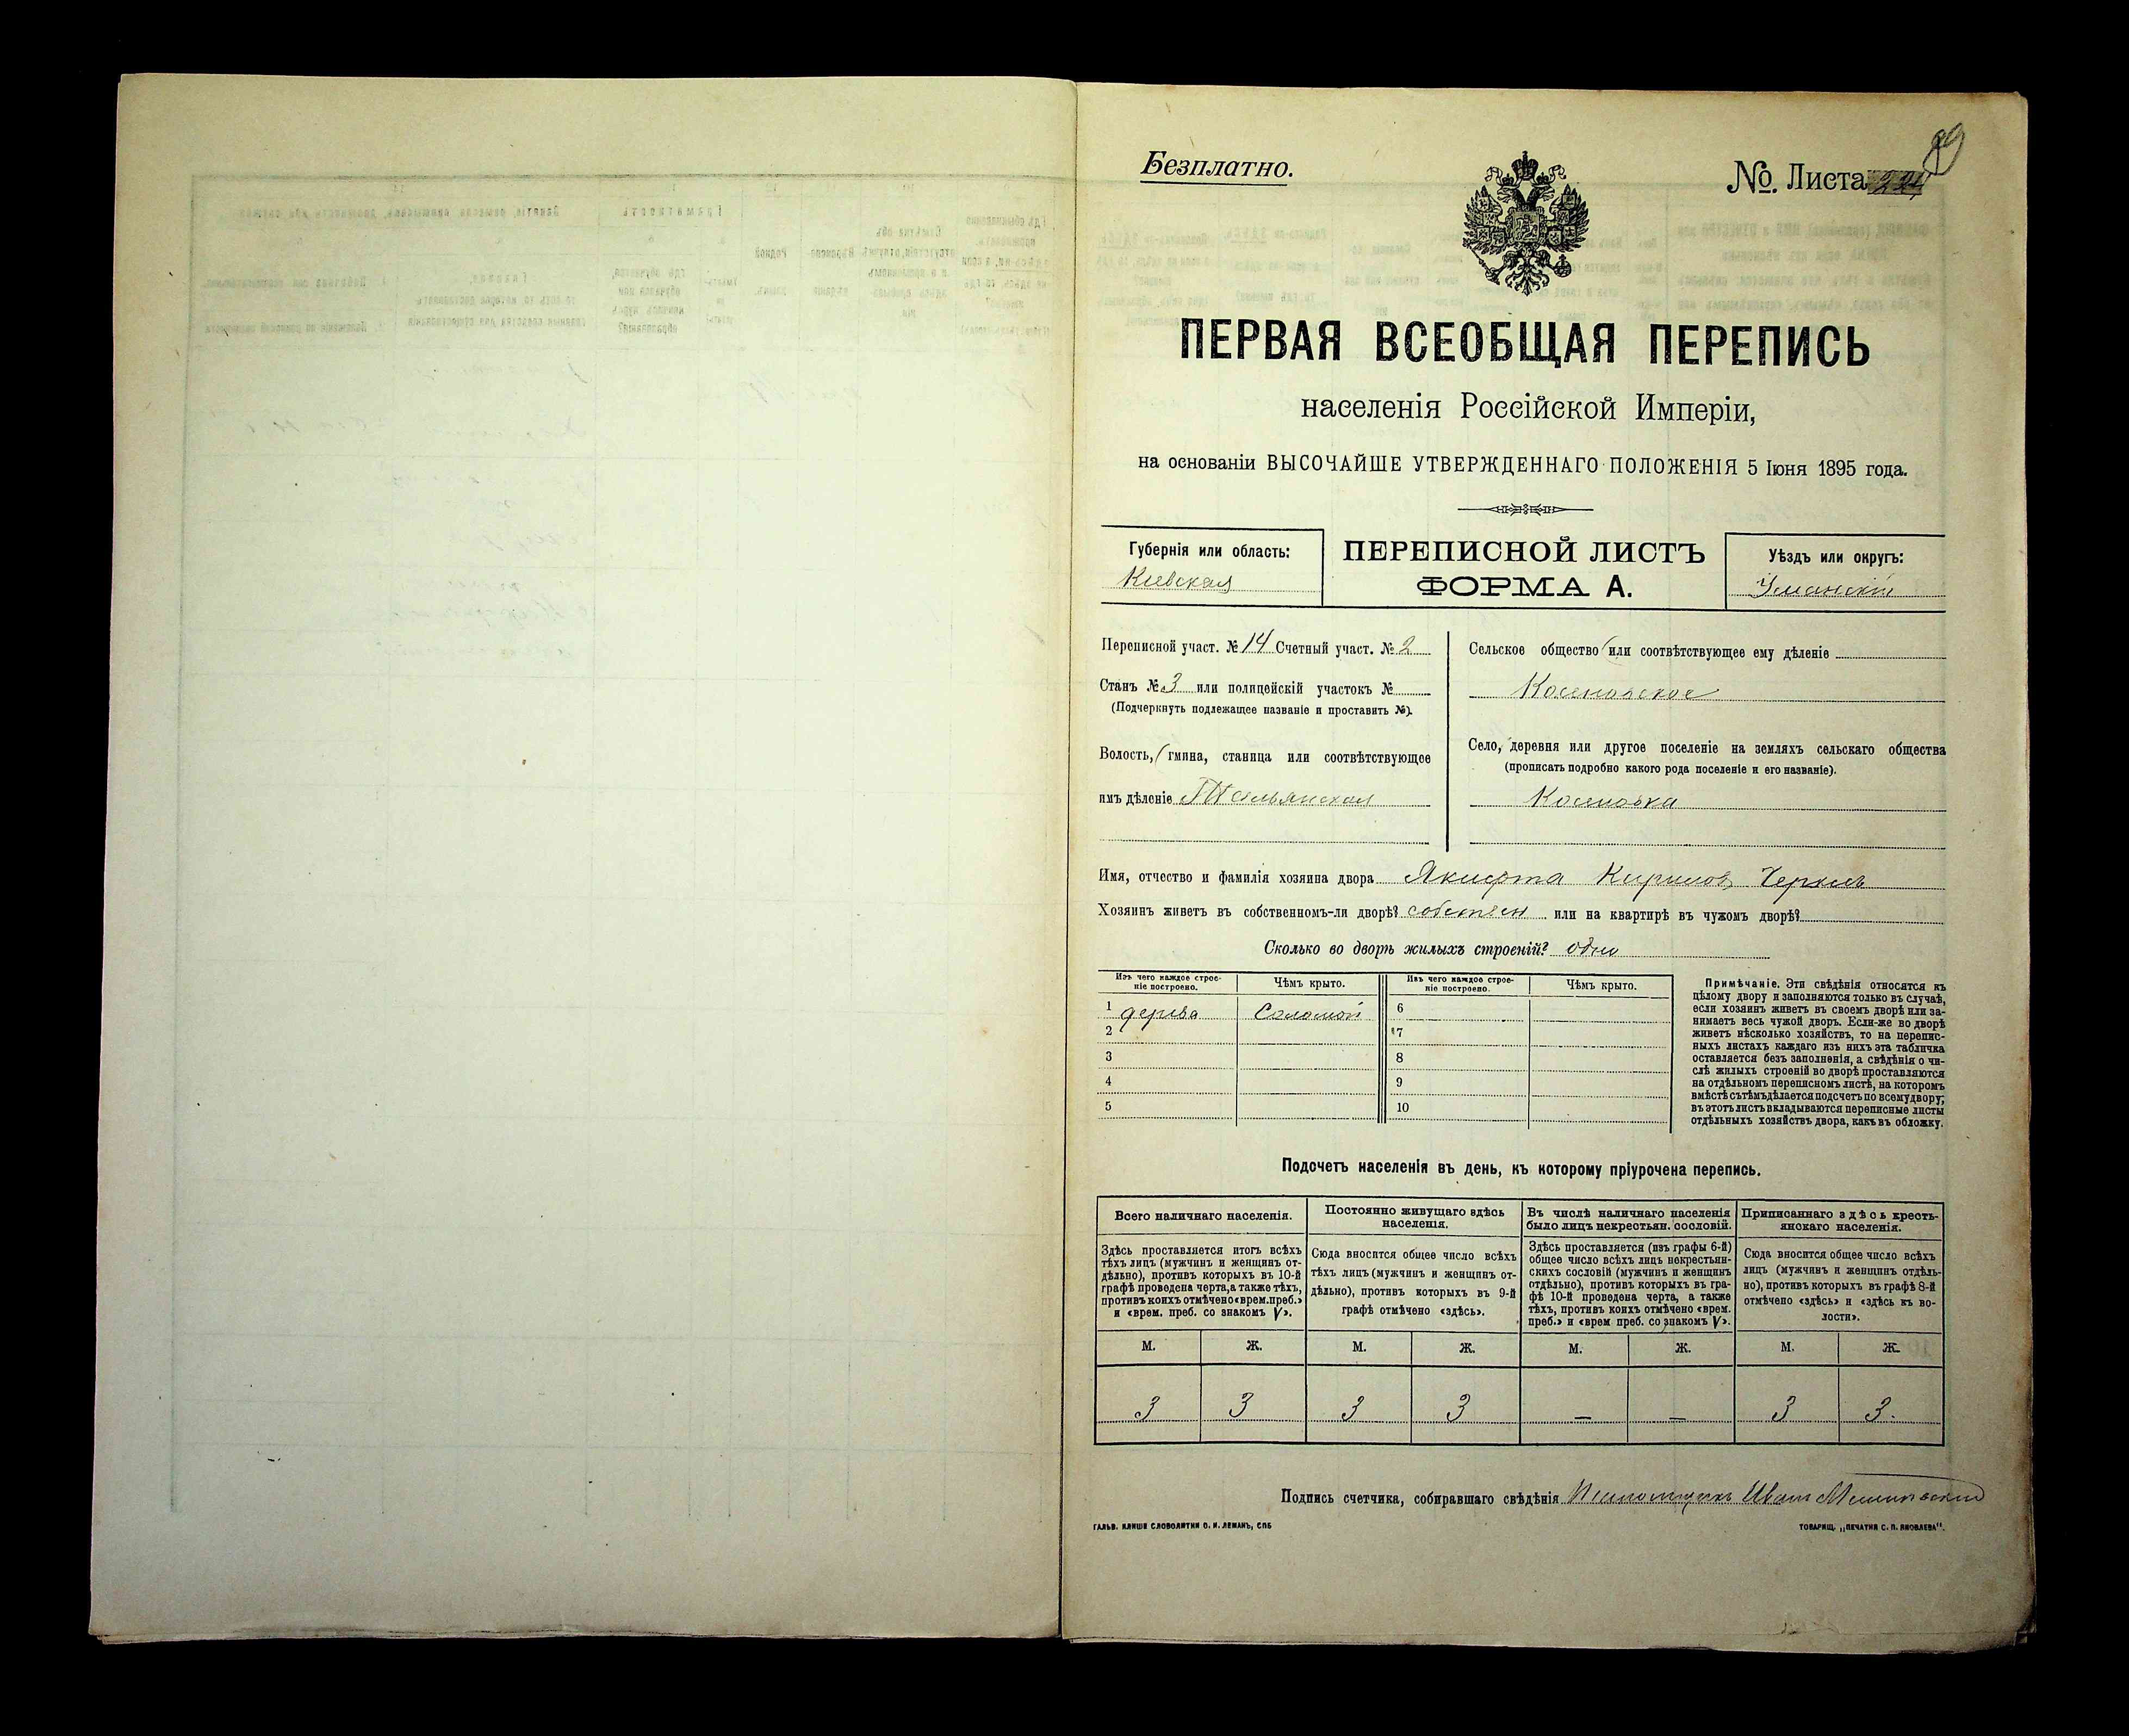 Безплатно.
№ Листа 224
89
ПЕРВАЯ ВСЕОБЩАЯ ПЕРЕПИСЬ
населенія Россійской Имперіи,
на основаніи ВЫСОЧАЙШЕ УТВЕРЖДЕННАГО ПОЛОЖЕНІЯ 5 Іюня 1895 года.
Губернія или область:
Киевская
ПЕРЕПИСНОЙ ЛИСТЪ
ФОРМА А.
Уѣздъ или округъ:
Уманскій
Переписной участ. № 14 Счетный участ. № 2
Станъ № 3 или полицейскій участокъ №
(Подчеркнуть подлежащее названіе и проставить №).
Волость, (гмина, станица или соотвѣтствующее
имъ дѣленіе
Сельское общество (или соотвѣтствующее ему дѣленіе
Косеновское
Село, деревня или другое поселеніе на земляхъ сельскаго общества
(прописать подробно какого рода поселеніе и его названіе).
Косеновка
Имя, отчество и фамилія хозяина двора Якифта Кирилов
Хозяинъ живетъ въ собственномъ-ли дворѣ? собствен или на квартирѣ въ чужомъ дворѣ?
Сколько во дворѣ жилыхъ строеній? одно
Изъ чего каждое строе-
ніе построено.
Чѣмъ крыто.
Изъ чего каждое строе-
ніе построено.
Чѣмъ крыто.
1 дерева Соломой 6
2 7
3 8
4 9
5 10
Примѣчаніе. Эти свѣдѣнія относятся къ
цѣлому двору и заполняются только въ случаѣ,
если хозяинъ живетъ въ своемъ дворѣ или за-
нимаетъ весь чужой дворъ. Если-же во дворѣ
живетъ нѣсколько хозяйствъ, то на перепис-
ныхъ листахъ каждаго изъ нихъ эта табличка
оставляется безъ заполненія, а свѣдѣнія о чи-
слѣ жилыхъ строеній во дворѣ проставляются
на отдѣльномъ переписномъ листѣ, на которомъ
вмѣстѣ съ тѣмъ дѣлается подсчетъ по всему двору;
въ этотъ листъ вкладываются переписные листы
отдѣльныхъ хозяйствъ двора, какъ въ обложку.
Подсчетъ населенія въ день, къ которому пріурочена перепись.
Всего наличнаго населенія.
Здѣсь проставляется итогъ всѣхъ
тѣхъ лицъ (мужчинъ и женщинъ от-
дѣльно), противъ которыхъ въ 10-й
графѣ проведена черта, а также тѣхъ,
противъ коихъ отмѣчено «врем. преб.»
и «врем. преб. со знакомъ V».
Постоянно живущаго здѣсь
населенія.
Сюда вносится общее число всѣхъ
тѣхъ лицъ (мужчинъ и женщинъ от-
дѣльно), противъ которыхъ въ 9-й
графѣ отмѣчено «здѣсь».
Въ числѣ наличнаго населенія
было лицъ некрестьян. сословій.
Здѣсь проставляется (изъ графы 6-й)
общее число всѣхъ лицъ некрестьян-
скихъ сословій (мужчинъ и женщинъ
отдѣльно), противъ которыхъ въ гра-
фѣ 10-й проведена черта, а также
тѣхъ, противъ коихъ отмѣчено «врем.
преб.» и «врем преб. со знакомъ V».
Приписаннаго здѣсь кресть-
янскаго населенія.
Сюда вносится общее число всѣхъ
лицъ (мужчинъ и женщинъ отдѣль-
но), противъ которыхъ въ графѣ 8-й
отмѣчено «здѣсь» и «здѣсь къ во-
лости».
М. Ж. М. Ж. М. Ж. М. Ж.
3 3 3 3 — — 3 3.
Подпись счетчика, собиравшаго свѣдѣнія Иванъ
ГАЛЬВ. КЛИШЕ СЛОВОЛИТНИ О. И. ЛЕМАНЪ, СПБ
ТОВАРИЩ. „ПЕЧАТНЯ С. П. ЯКОВЛЕВА".